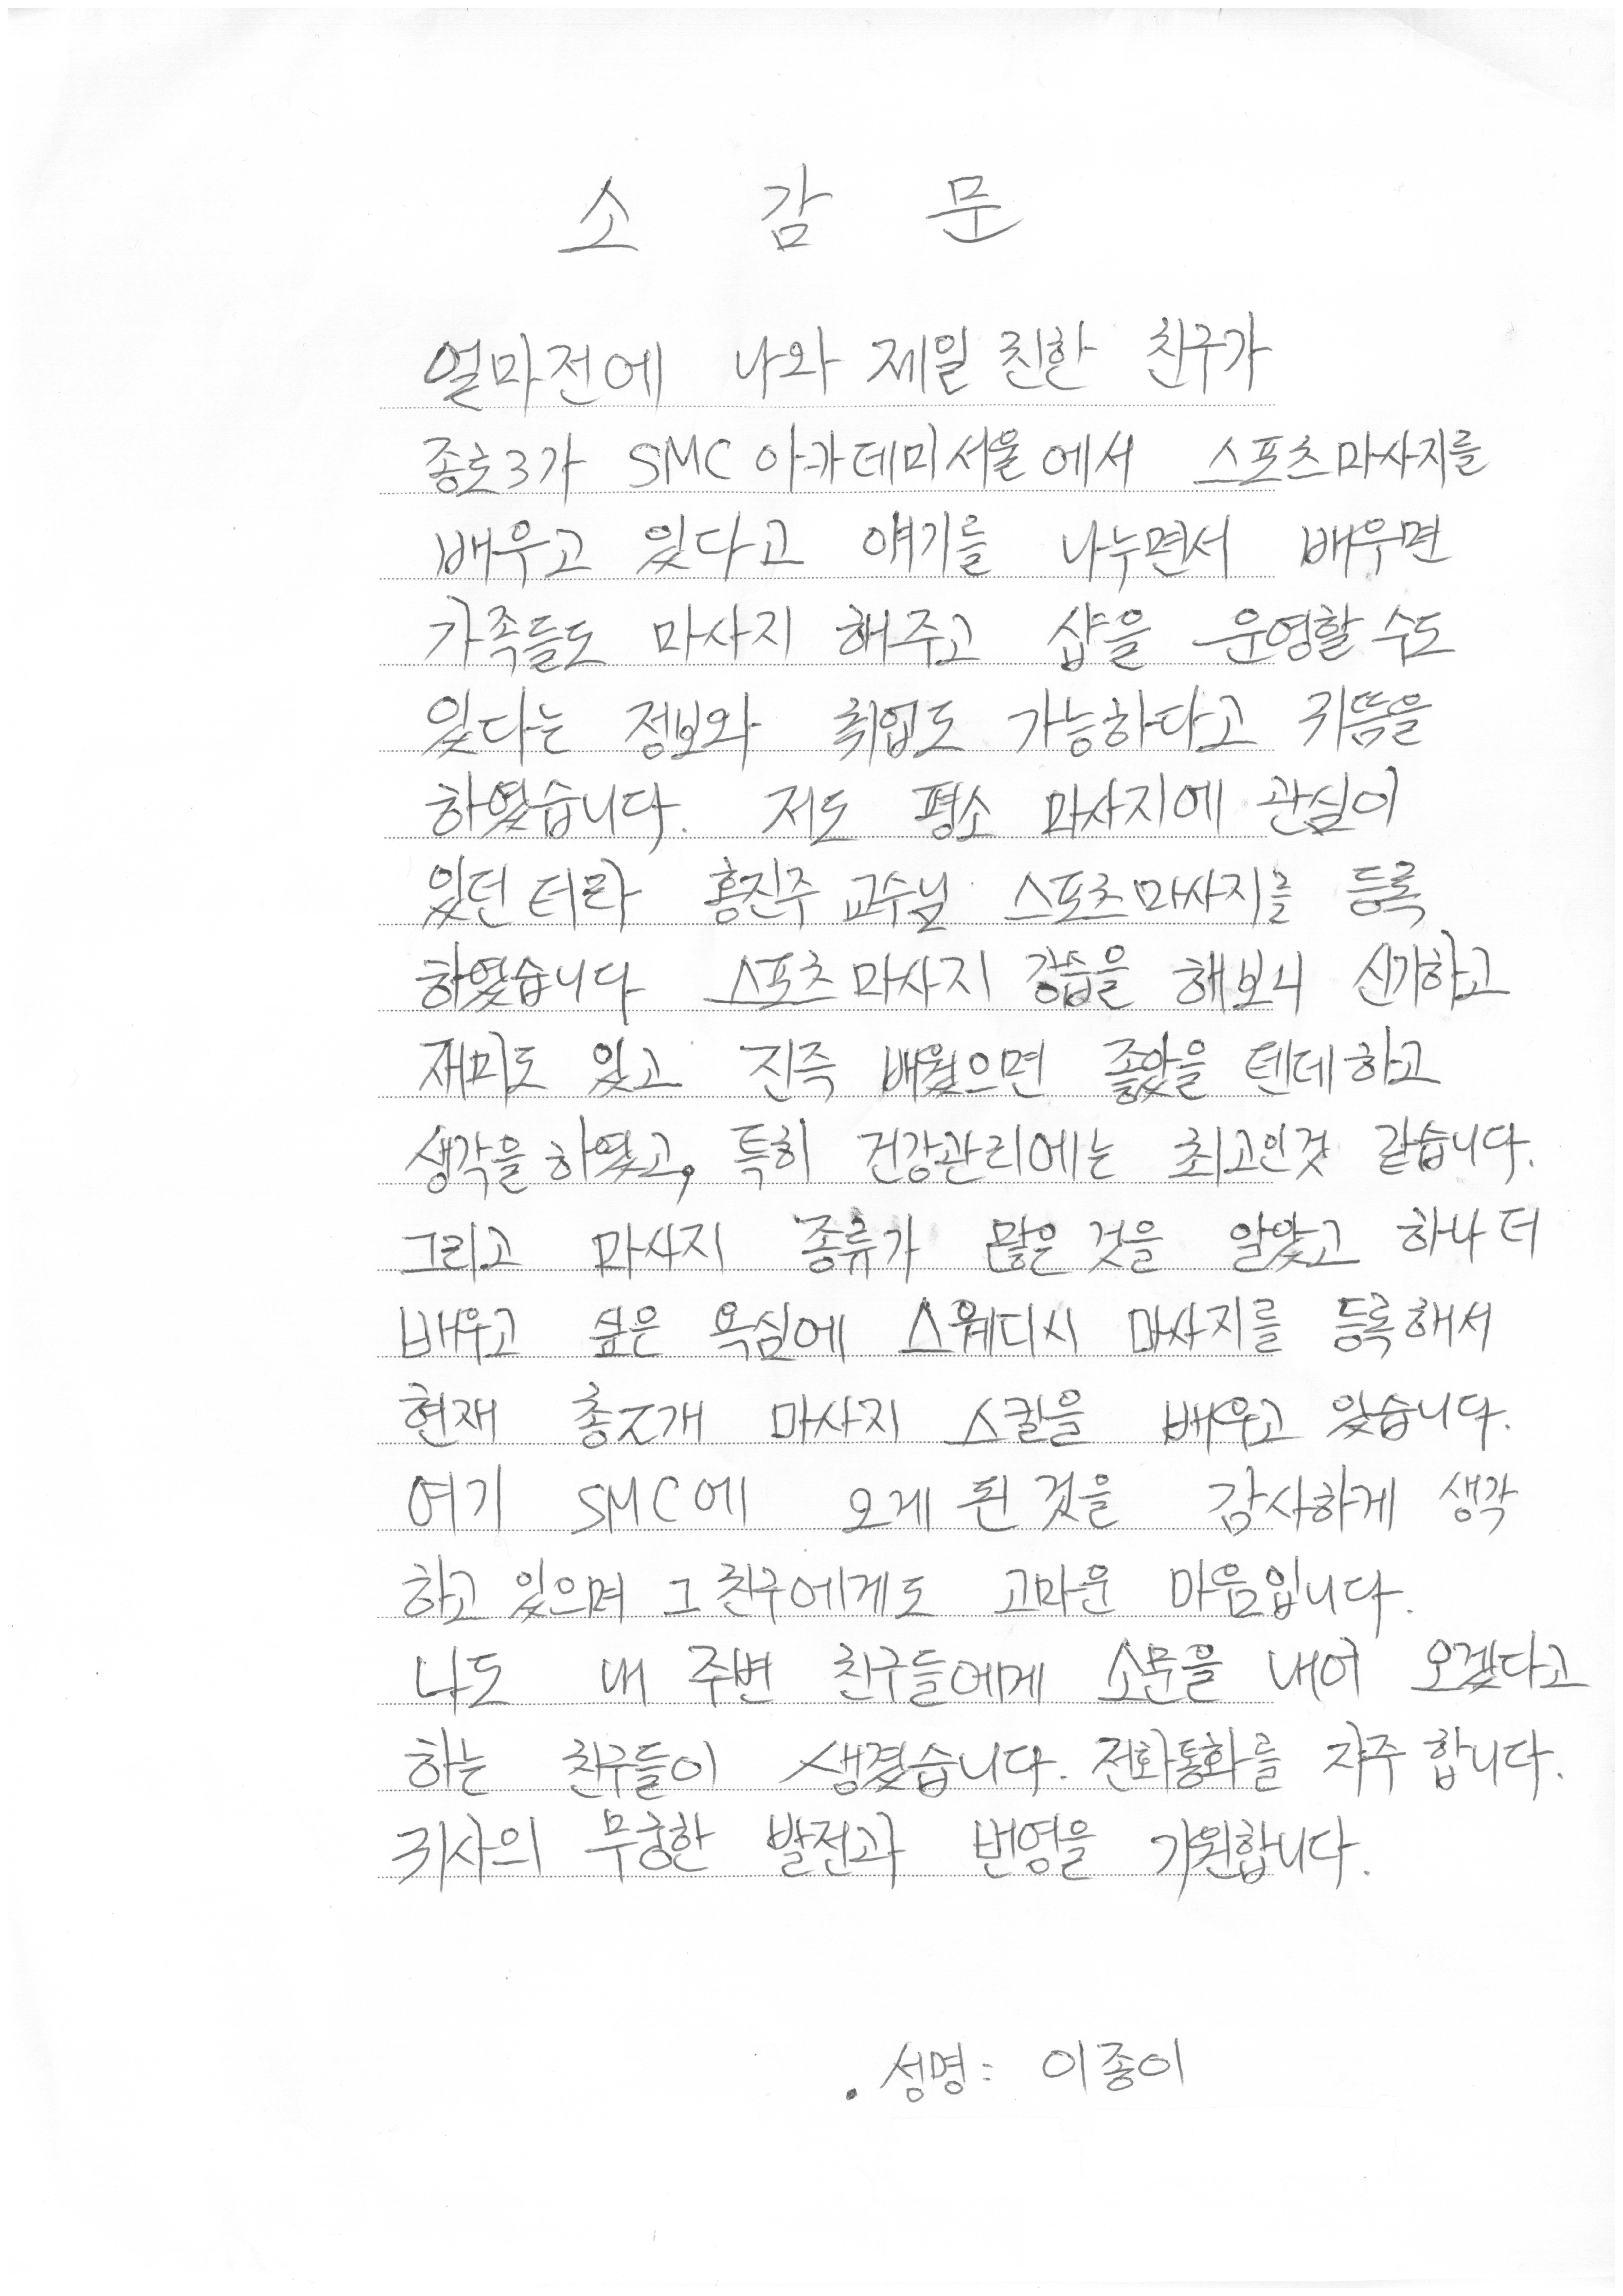 소 감 문
얼마전에 나와 제일 친한 친구가
종로3가 SMC 아카데미서울에서 스포츠마사지를
배우고 있다고 얘기를 나누면서 배우면
가족들도 마사지 해주고 샵을 운영할 수도
있다는 정보와 취업도 가능하다고 귀뜸을
하였습니다. 저도 평소 마사지에 관심이
있던 터라 홍진주 교수님 스포츠마사지를 등록
하였습니다 스포츠마사지 강습을 해보니 신기하고
재미도 있고 진즉 배웠으면 좋았을 텐데 하고
생각을 하였고, 특히 건강관리에는 최고인것 같습니다.
그리고 마사지 종류가 많은 것을 알았고 하나 더
배우고 싶은 욕심에 스웨디시 마사지를 등록해서
현재 총 개 마사지 스킬을 배우고 있습니다.
여기 SMC에 오게 된 것을 감사하게 생각
하고 있으며 그 친구에게도 고마운 마음입니다.
나도 내 주변 친구들에게 소문을 내어 오겠다고
하는 친구들이 생겼습니다. 전화통화를 자주 합니다.
귀사의 무궁한 발전과 번영을 기원합니다.
. 성명: 이종이